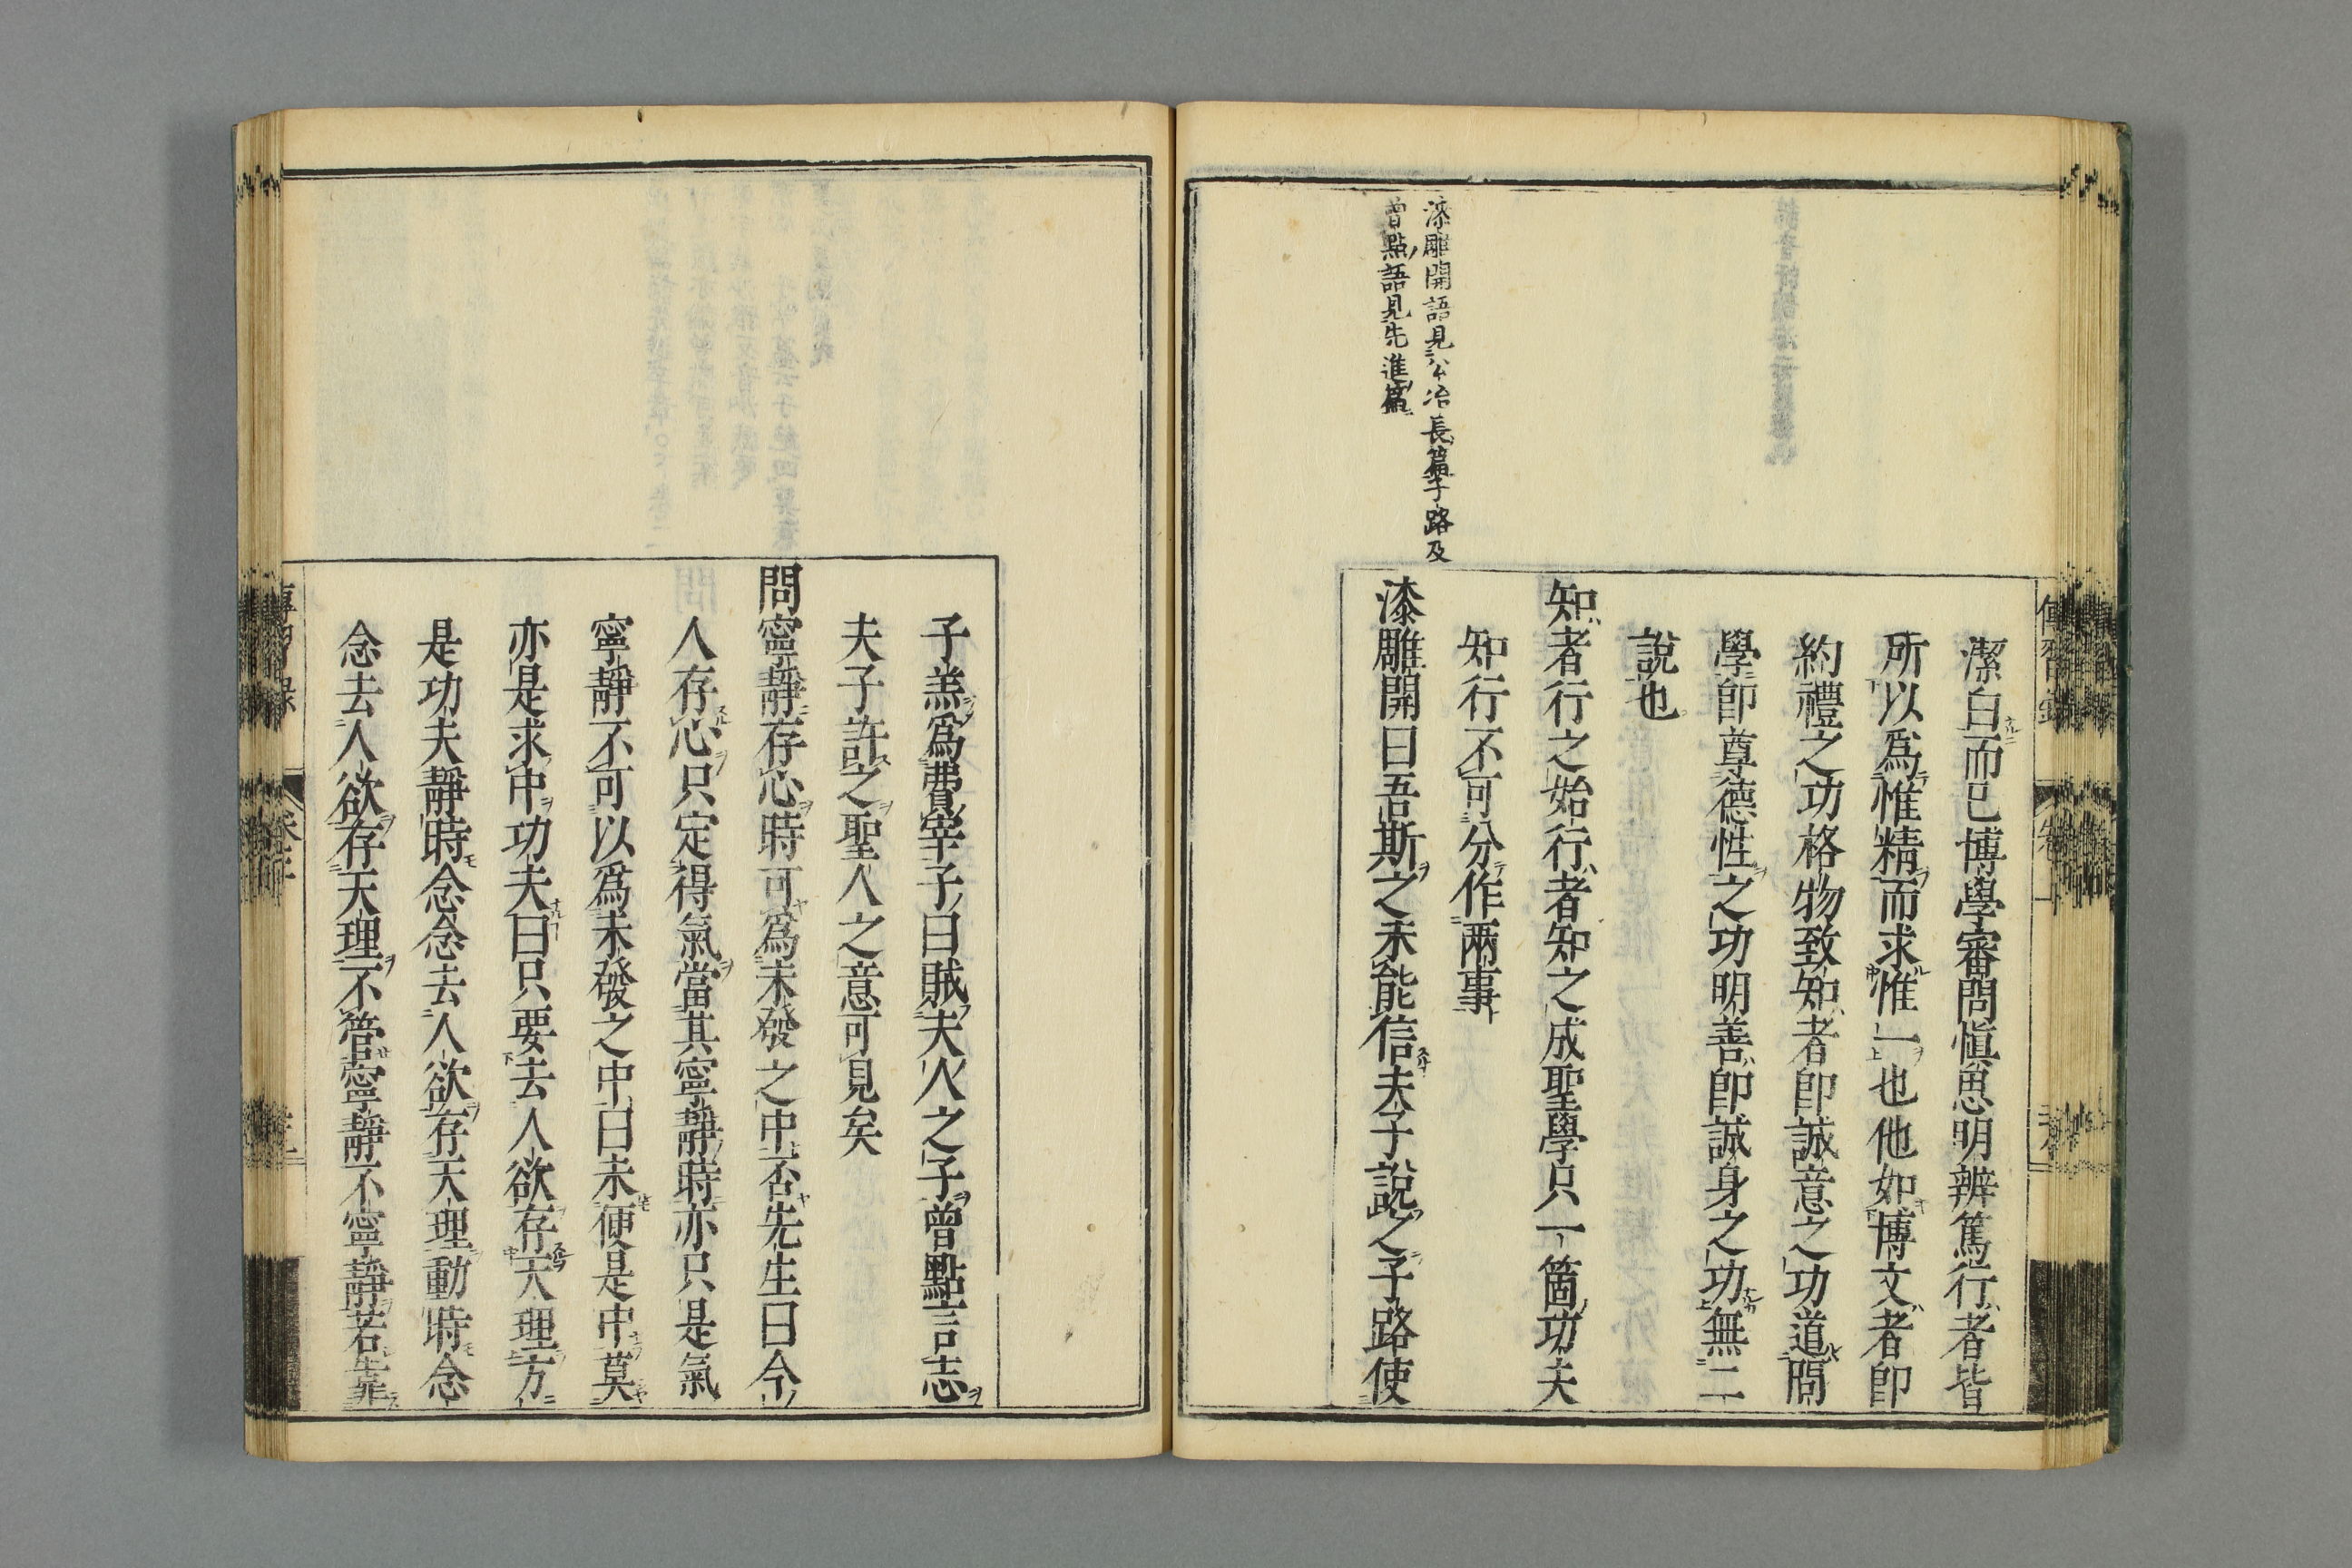 潔白而已博學審問愼思明辨篤行者皆
所以爲惟精而求惟一也他如博文者卽
約禮之功格物致知者卽誠意之功道問
學卽尊德性之功明善卽誠身之功無二
說也
知者行之始行者知之成聖學只一箇功夫
知行不可分作兩事
漆雕開語見公冶長篇子路及
曾點語見先進篇
漆雕開曰吾斯之未能信夫子說之子路使
子羔爲費宰子曰賊夫人之子曾點言志
夫子許之聖人之意可見矣
問寧靜存心時可爲未發之中否先生曰今
人存心只定得氣當其寧靜時亦只是氣
寧靜不可以爲未發之中曰未便是中莫
亦是求中功夫曰只要去人欲存天理方
是功夫靜時念念去人欲存天理動時念
念去人欲存天理不管寧靜不寧靜若靠